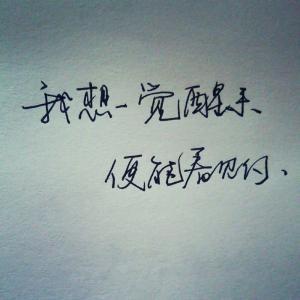 我想一觉醒来
便能看见你、